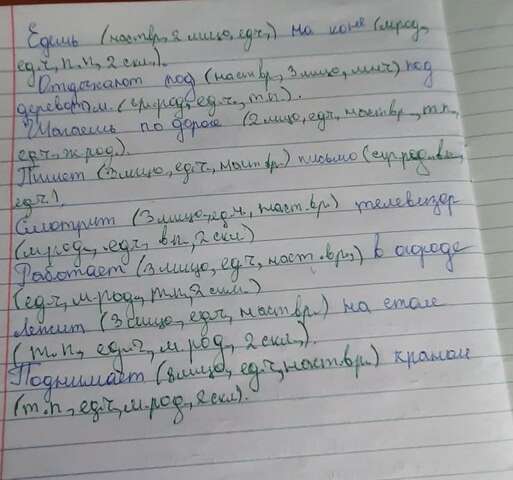 Едешь (наст.вр., 2 лицо, ед.ч,) на коне (м.род.,
ед.ч, п.п, 2 скл.).
Отдыхают под (наст.вр., 3 лицо, мн.ч) под
деревом. (ср.род., ед.ч., т.п.).
Шагаешь по дороге (2 лицо, ед.ч, наст.вр., т.п.,
ед.ч., ж.род.).
Пишет (3 лицо, ед.ч, наст.вр.) письмо (ср.род., в.п.,
ед.ч).
Смотрит (3 лицо, ед.ч, наст.вр.) телевизор
(м.род., ед.ч, в.п., 2 скл)
Работает (3 лицо, ед.ч, наст.вр.,) в огороде
(ед.ч, м.род., т.п, 2 скл.)
Лежит (3 лицо, ед.ч, наст.вр.) на столе
(т.п, ед.ч, м.род, 2 скл,).
Поднимает (3 лицо, ед.ч, наст.вр.) краном
(т.п, ед.ч, м.род, 2 скл).